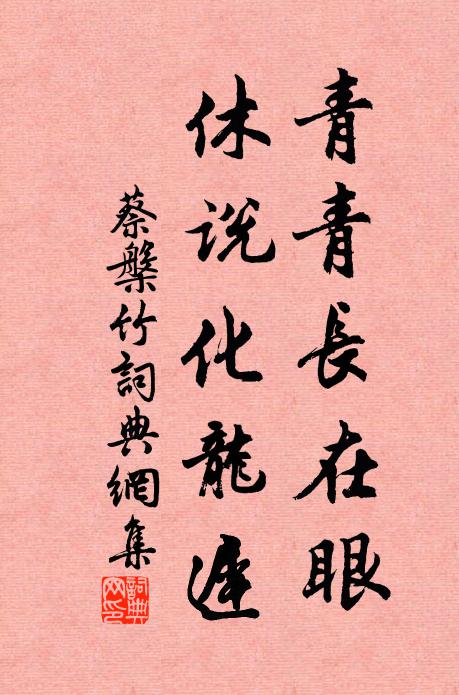 青青長在眼
休説化龍遲
蔡槃竹詞典網集
詞典
网印